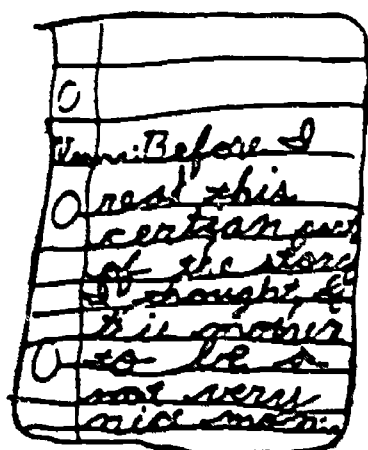 Before I
read this
certian part
of the story
I thought
the mother
to be a
not very
nice mom.